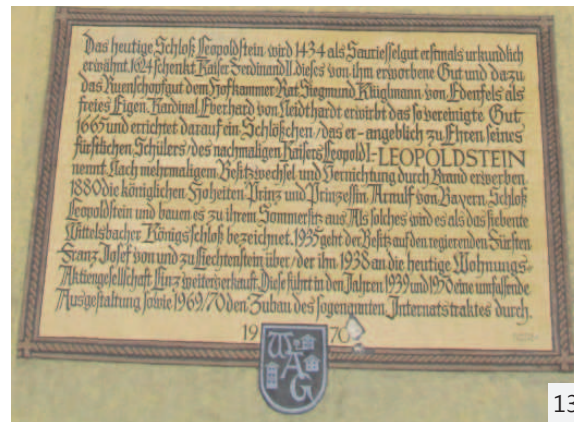 Das heutige Schloß Leopoldstein wird 1434 als Sauriesselgut erstmals urkundlich
erwähnt. 1624 schenkt Kaiser Ferdinand II. dieses von ihm erworbene Gut und dazu
das Ruenschopfgut dem Hofkammer Rat Siegmund Küglmann von Ederfels als
freies Eigen. Kardinal Eberhard von Neidthardt erwirbt das so vereinigte Gut
1665 und errichtet darauf ein Schlößchen / das er - angeblich zu Ehren seines
fürstlichen Schülers / des nachmaligen Kaisers Leopold I - LEOPOLDSTEIN
nennt. Nach mehrmaligem Besitzwechsel und Vernichtung durch Brand erwerben
1880 die königlichen Hoheiten Prinz und Prinzessin Arnulf von Bayern Schloß
Leopoldstein und bauen es zu ihrem Sommersitz aus. Als solches wird es als das siebente
Wittelsbacher Königsschloß bezeichnet. 1935 geht der Besitz auf den regierenden Fürsten
Franz Josef von und zu Liechtenstein über / der ihn 1938 an die heutige Wohnungs-
Aktiengesellschaft Linz weiterverkauft. Diese führt in den Jahren 1939 und 1950 eine umfassende
Ausgestaltung sowie 1969/70 den Zubau des sogenannten Internatstraktes durch.
19 70
WAG
13